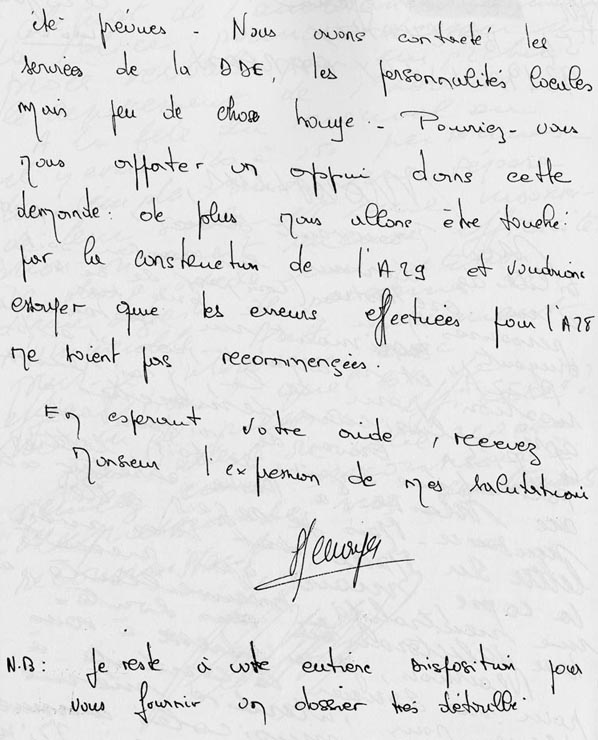 été prévues - Nous avons contacté les
services de la DDE, les personnalités locales
mais peu de chose bouge - Pourriez-vous
nous apporter un appui dans cette
demande : de plus nous allons être touché
par la construction de l'A29 et voudrions
essayer que les erreurs effectuées pour l'A28
ne soient pas recommençées.
En esperant votre aide, recevez
Monsieur l'expression de mes salutations
N.B : Je reste à votre entière disposition pour
vous fournir un dossier très détaillé.